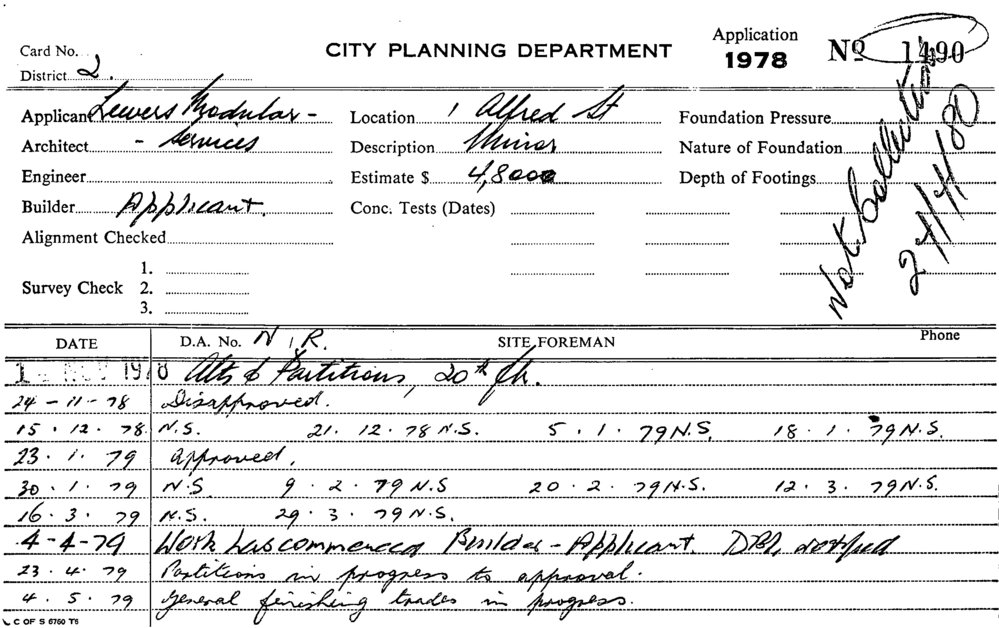 Card No.
District 2.
CITY PLANNING DEPARTMENT
Application
1978
No 1490
Applicant Lewers Modular -
Architect - Services
Engineer
Builder Applicant.
Alignment Checked
Survey Check
1.
2.
3.
Location 1 Alfred St
Description Minor
Estimate $ 4,800
Conc. Tests (Dates)
Foundation Pressure
Nature of Foundation
Depth of Footings
24/4/80
DATE D.A. No. N.R. SITE FOREMAN Phone
NOV 1978 Alts & Partitions, 20th flr.
24-11-78 Disapproved.
15.12.78 N.S. 21.12.78 N.S. 5.1.79 N.S. 18.1.79 N.S.
23.1.79 Approved.
30.1.79 N.S 9.2.79 N.S 20.2.79 N.S. 12.3.79 N.S.
16.3.79 N.S. 29.3.79 N.S.
4-4-79 Work has commenced Builder - Applicant. notified
23.4.79 Partitions in progress to approval.
4.5.79 General finishing trades in progress.
C OF S 6760 T6